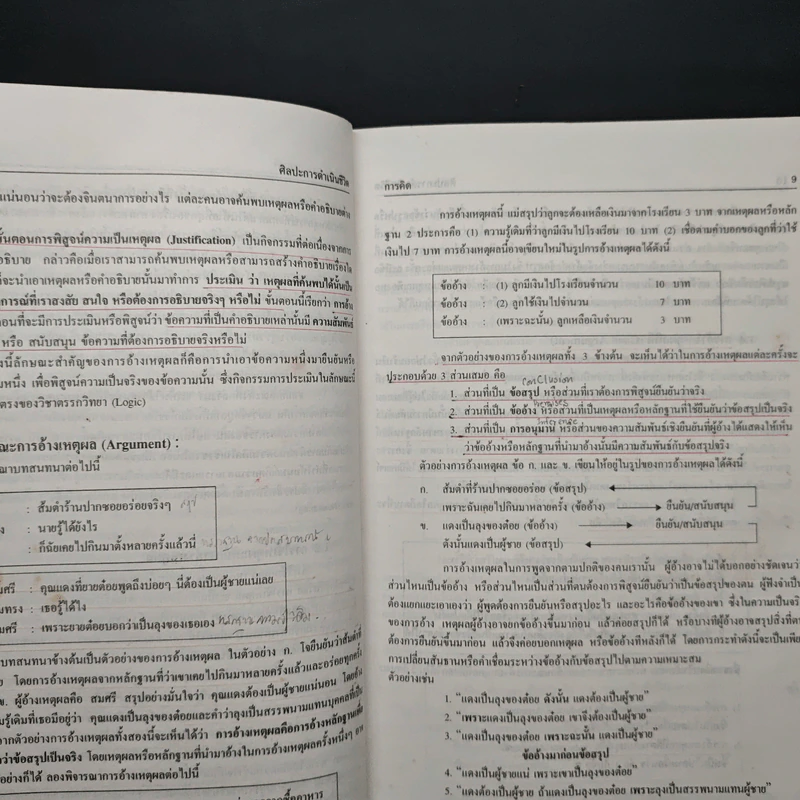 ศิลปะการดำเนินชีวิต
แน่นอนว่าจะต้องจินตนาการอย่างไร แต่ละคนอาจค้นพบเหตุผลหรือคำอธิบายต่าง
ขั้นตอนการพิสูจน์ความเป็นเหตุผล (Justification) เป็นกิจกรรมที่ต่อเนื่องจากการ
ธิบาย กล่าวคือเมื่อเราสามารถค้นพบเหตุผลหรือสามารถสร้างคำอธิบายเรื่องใด
ก็จะนำเอาเหตุผลหรือคำอธิบายนั้นมาทำการ ประเมิน ว่า เหตุผลที่ค้นพบได้นั้นเป็น
การณ์ที่เราสงสัย สนใจ หรือต้องการอธิบายจริงๆ หรือไม่ ขั้นตอนนี้เรียกว่า การอ้าง
ตอนที่จะมีการประเมินหรือพิสูจน์ว่า ข้อความที่เป็นคำอธิบายเหล่านั้นมี ความสัมพันธ์
หรือ สนับสนุน ข้อความที่ต้องการอธิบายจริงหรือไม่
งนี้ลักษณะสำคัญของการอ้างเหตุผลก็คือการนำเอาข้อความหนึ่งมายืนยันหรือ
มหนึ่ง เพื่อพิสูจน์ความเป็นจริงของข้อความนั้น ซึ่งกิจกรรมการประเมินในลักษณะนี้
ตรงของวิชาตรรกวิทยา (Logic)
ณะการอ้างเหตุผล (Argument) :
ณาบทสนทนาต่อไปนี้
: ส้มตำร้านปากซอยอร่อยจริงๆ
ง : นายรู้ได้ยังไร
: ก็ฉันเคยไปกินมาตั้งหลายครั้งแล้วนี่
มศรี : คุณแดงที่ยายต๋อยพูดถึงบ่อยๆ นี่ต้องเป็นผู้ชายแน่เลย
มทรง : เธอรู้ได้ไง
มศรี : เพราะยายต๋อยบอกว่าเป็นลุงของเธอเอง
บทสนทนาข้างต้นเป็นตัวอย่างของการอ้างเหตุผล ในตัวอย่าง ก. โจยืนยันว่าส้มตำที่
ย โดยการอ้างเหตุผลจากหลักฐานที่ว่าเขาเคยไปกินมาหลายครั้งแล้วและอร่อยทุกครั้ง
ข. ผู้อ้างเหตุผลคือ สมศรี สรุปอย่างมั่นใจว่า คุณแดงต้องเป็นผู้ชายแน่นอน โดยอ้าง
มรู้เดิมที่เธอมีอยู่ว่า คุณแดงเป็นลุงของต๋อยและคำว่าลุงเป็นสรรพนามแทนบุคคลที่เป็น
จากตัวอย่างการอ้างเหตุผลทั้งสองนี้จะเห็นได้ว่า การอ้างเหตุผลคือการอ้างหลักฐานเพื่อ
ว่าข้อสรุปเป็นจริง โดยเหตุผลหรือหลักฐานที่นำมาอ้างในการอ้างเหตุผลครั้งหนึ่งๆ อาจ
อย่างก็ได้ ลองพิจารณาการอ้างเหตุผลต่อไปนี้
การคิด 9
การอ้างเหตุผลนี้ แม่สรุปว่าลูกจะต้องเหลือเงินมาจากโรงเรียน 3 บาท จากเหตุผลหรือหลัก
ฐาน 2 ประการคือ (1) ความรู้เดิมที่ว่าลูกมีเงินไปโรงเรียน 10 บาท (2) เชื่อตามคำบอกของลูกที่ว่าใช้
เงินไป 7 บาท การอ้างเหตุผลนี้อาจเขียนใหม่ในรูปการอ้างเหตุผลได้ดังนี้
ข้ออ้าง : (1) ลูกมีเงินไปโรงเรียนจำนวน 10 บาท
ข้ออ้าง : (2) ลูกใช้เงินไปจำนวน 7 บาท
ข้ออ้าง : (เพราะฉะนั้น) ลูกเหลือเงินจำนวน 3 บาท
จากตัวอย่างของการอ้างเหตุผลทั้ง 3 ข้างต้น จะเห็นได้ว่าในการอ้างเหตุผลแต่ละครั้งจะ
ประกอบด้วย 3 ส่วนเสมอ คือ
conclusion
1. ส่วนที่เป็น ข้อสรุป หรือส่วนที่เราต้องการพิสูจน์ยืนยันว่าจริง
2. ส่วนที่เป็น ข้ออ้าง หรือส่วนที่เป็นเหตุผลหรือหลักฐานที่ใช้ยืนยันว่าข้อสรุปเป็นจริง
3. ส่วนที่เป็น การอนุมาน หรือส่วนของความสัมพันธ์เชิงยืนยันที่ผู้อ้างได้แสดงให้เห็น
ว่าข้ออ้างหรือหลักฐานที่นำมาอ้างนั้นมีความสัมพันธ์กับข้อสรุปจริง
ตัวอย่างการอ้างเหตุผล ข้อ ก. และ ข. เขียนให้อยู่ในรูปของการอ้างเหตุผลได้ดังนี้
ก. ส้มตำที่ร้านปากซอยอร่อย (ข้อสรุป)
เพราะฉันเคยไปกินมาหลายครั้ง (ข้ออ้าง) ยืนยัน/สนับสนุน
ข. แดงเป็นลุงของต๋อย (ข้ออ้าง) ยืนยัน/สนับสนุน
ดังนั้นแดงเป็นผู้ชาย (ข้อสรุป)
การอ้างเหตุผลในการพูดจาตามปกติของคนเรานั้น ผู้อ้างอาจไม่ได้บอกอย่างชัดเจนว่า
ส่วนไหนเป็นข้ออ้าง หรือส่วนไหนเป็นส่วนที่ตนต้องการพิสูจน์ยืนยันว่าเป็นข้อสรุปของตน ผู้ฟังจำเป็น
ต้องแยกแยะเอาเองว่า ผู้พูดต้องการยืนยันหรือสรุปอะไร และอะไรคือข้ออ้างของเขา ซึ่งในความเป็นจริง
ของการอ้าง เหตุผลผู้อ้างอาจยกข้ออ้างขึ้นมาก่อน แล้วค่อยสรุปก็ได้ หรือบางทีผู้อ้างอาจสรุปสิ่งที่ต
ต้องการยืนยันขึ้นมาก่อน แล้วจึงค่อยบอกเหตุผล หรือข้ออ้างทีหลังก็ได้ โดยการกระทำดังนี้จะเป็นเพีย
การเปลี่ยนสันธานหรือคำเชื่อมระหว่างข้ออ้างกับข้อสรุปไปตามความเหมาะสม
ตัวอย่างเช่น
1. "แดงเป็นลุงของต๋อย ดังนั้น แดงต้องเป็นผู้ชาย"
2. "เพราะแดงเป็นลุงของต๋อย เขาจึงต้องเป็นผู้ชาย"
3. "แดงเป็นลุงของต๋อย เพราะฉะนั้น แดงเป็นผู้ชาย"
ข้ออ้างมาก่อนข้อสรุป
4. "แดงเป็นผู้ชายแน่ เพราะเขาเป็นลุงของต๋อย"
5. "แดงต้องเป็นผู้ชาย ถ้าแดงเป็นลุงของต๋อย เพราะลุงเป็นสรรพนามแทนผู้ชาย"